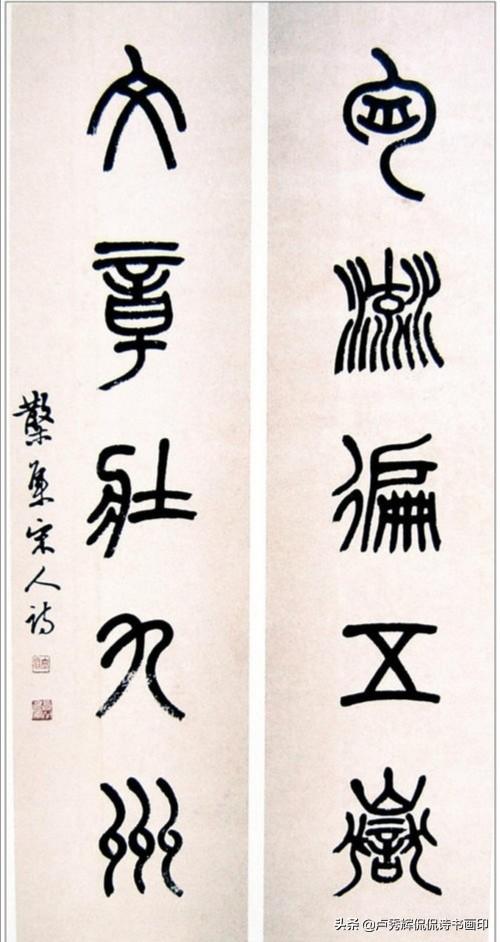 流徧五嶽
文章壯九州
散木集宋人詩
头条 @卢秀辉侃侃诗书画印